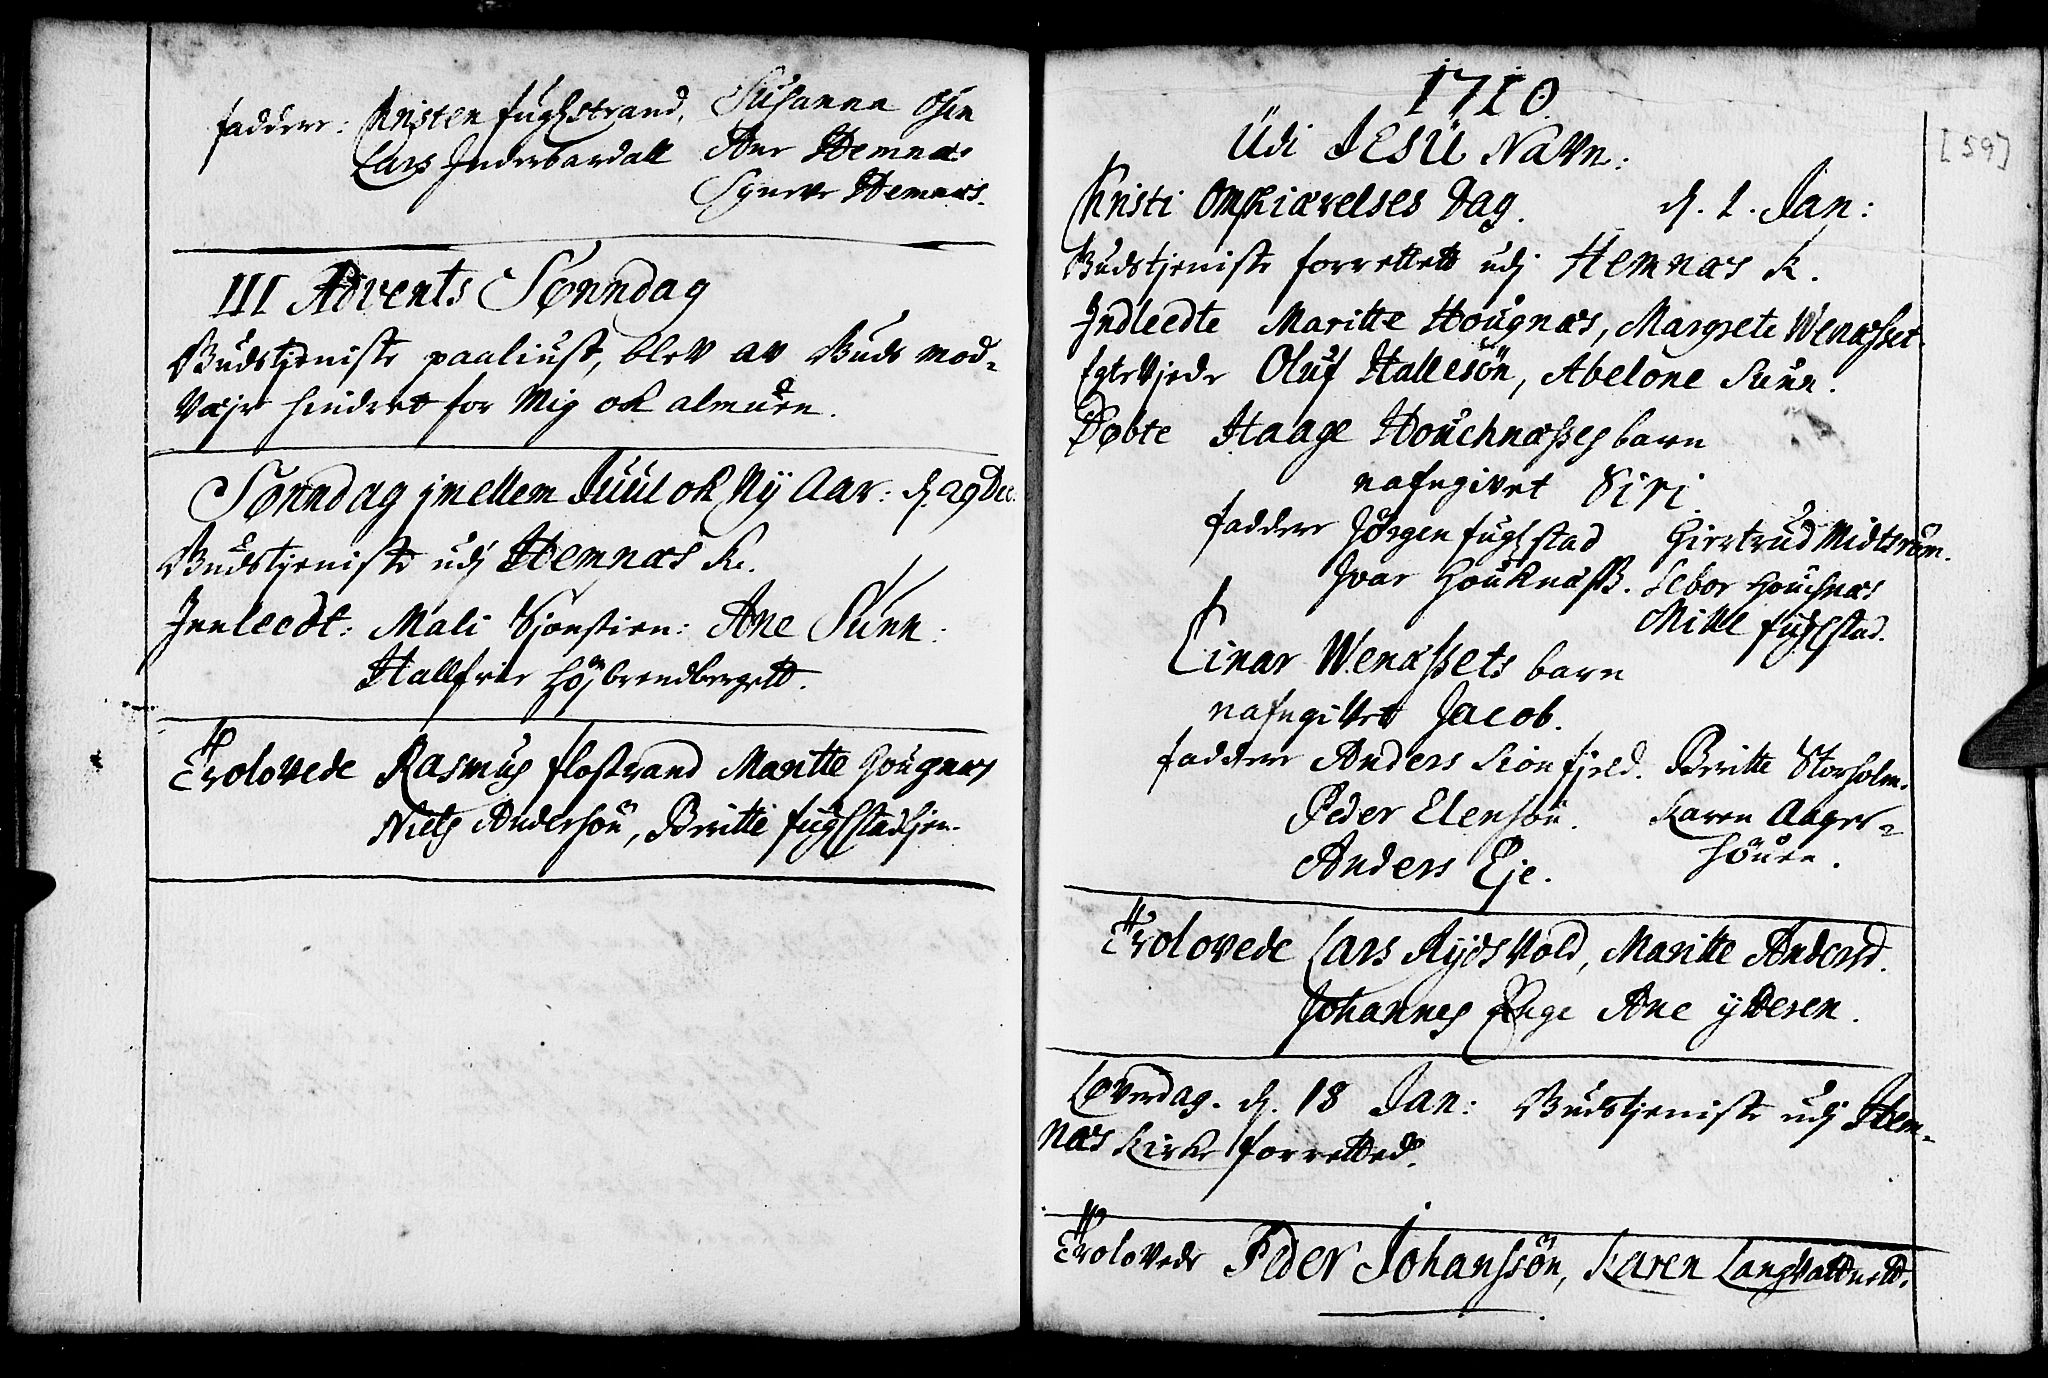 faddere: Kristen fuglstrand, Susanna Osen
Lars Inderbardall Ane Hemnæs
Syneve Hemnæs.
III Advents Sønndag
Gudstjeniste paaliust, blev av Guds mod-
væjr hindret for Mig ok almuen.
Sønndag jmellem Juul ok Nÿ Aar: d. 29 Dec.
Gudstjeniste udj Hemnæs K.
Innleedt: Mali Sjonstien: Ane Sunn:
Hallfrie Højbrendbergett.
Trolovede Rasmus flostrand Maritte Hougnæs
Niels Andersøn, Biritte fuglstadsjen.
1710.
[59]
Udi JESU Navn:
Kristi Omskiærelses Dag. d. 1. Jan:
Gudstjeniste forrettett udj Hemnæs K.
Indleedte Maritte Hougnæs, Margrete Wenæsset.
Egteviede Oluf Hallesøn, Abelone Sunn.
Døbte Haage Houchnæsses barn
nafngivet Siri.
faddere Jørgen fuglstad Giertrud Midtrøm.
Ivar Houknæss. Sebor Houchnæs
Mille fuglstad.
Einar Wenæssets barn
nafngivet Jacob.
faddere Anders Sionfjeld. Biritte Storholm.
Peder Elensøn. Karen Aager-
Anders Eje. høuen.
Trolovede Lars Rydsvold, Maritte Andersd.
Johannes Enge Ane ytteren.
Løverdag. d. 18 Jan: Gudstjeniste udj Hem-
næs Kirke forretted.
Trolovede Peder Johanssøn, Karen Langvattnett.